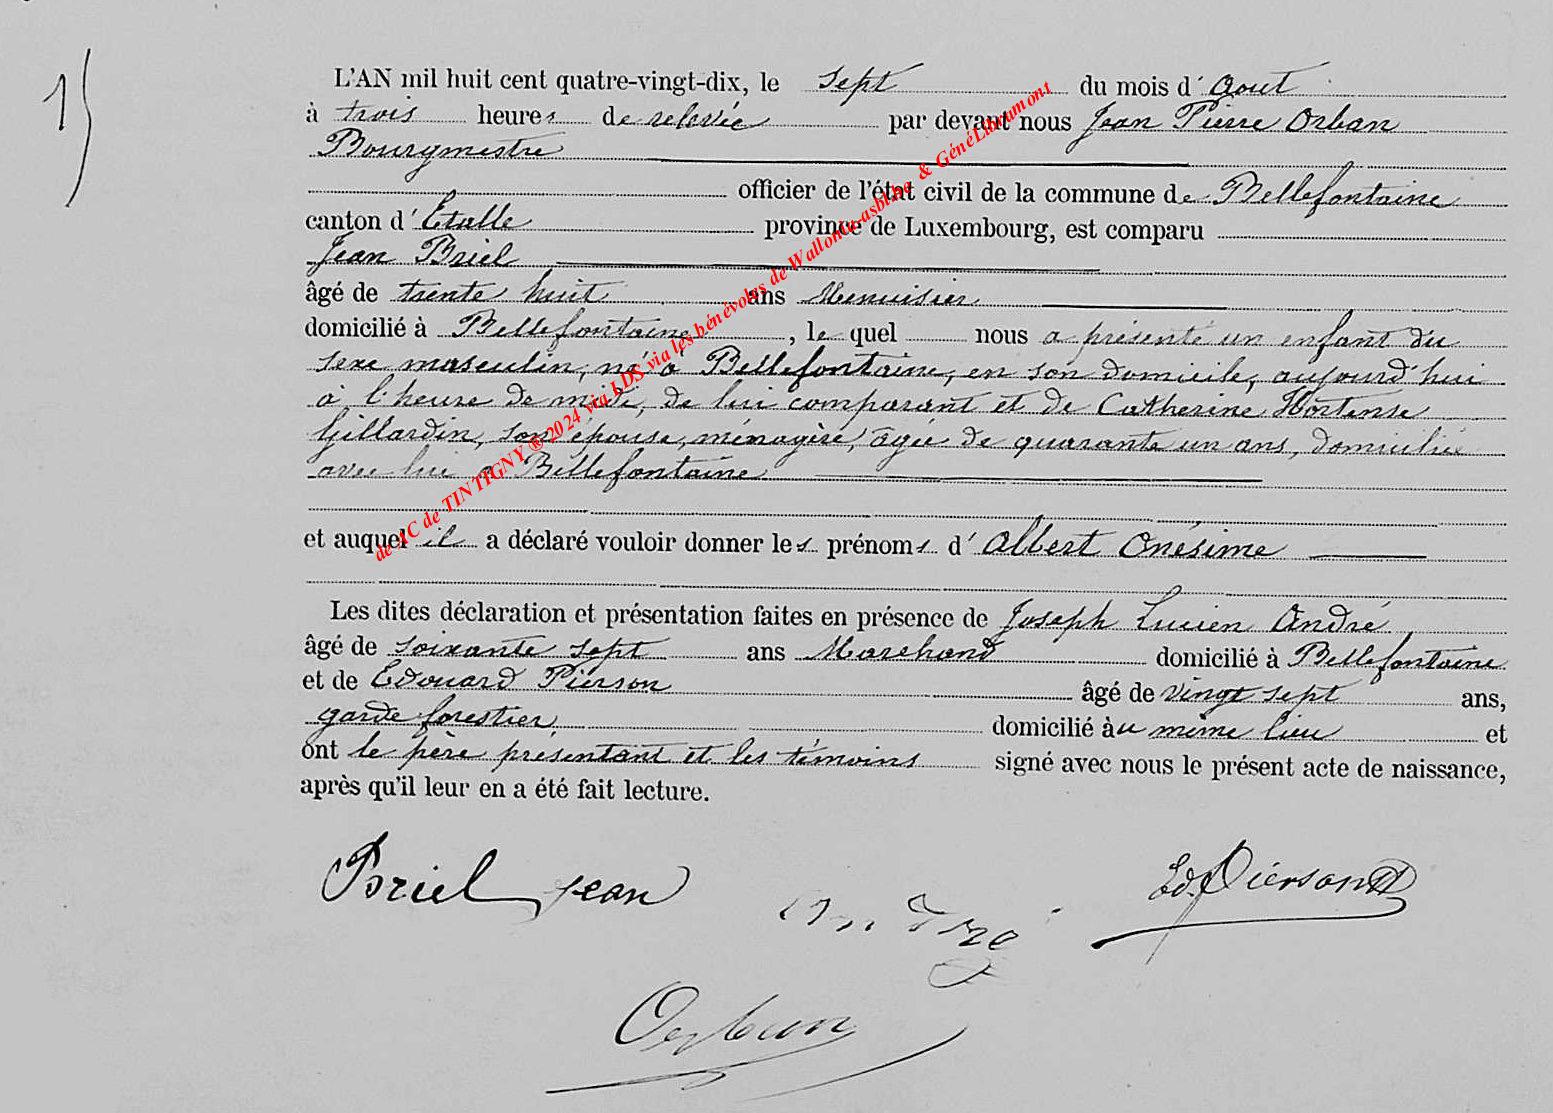 1)
L'AN mil huit cent quatre-vingt-dix, le sept du mois d' Aout
à trois heures de relevée par devant nous Jean Pierre Orban
Bourgmestre
officier de l'état civil de la commune de Bellefontaine
canton d' Etalle province de Luxembourg, est comparu
Jean Briel
âgé de trente huit ans Menuisier
domicilié à Bellefontaine, le quel nous a présenté un enfant du
sexe masculin, né à Bellefontaine, en son domicile, aujourd'hui
à l'heure de midi, de lui comparant et de Catherine Hortense
Gillardin, son épouse, ménagère, âgée de quarante un ans, domiciliée
avec lui à Bellefontaine
et auquel il a déclaré vouloir donner les prénoms d' Albert Onésime
Les dites déclaration et présentation faites en présence de Joseph Lucien André
âgé de soixante sept ans Marchand domicilié à Bellefontaine
et de Edouard Pierson âgé de vingt sept ans,
garde forestier domicilié àu même lieu et
ont le père présentant et les témoins signé avec nous le présent acte de naissance,
après qu'il leur en a été fait lecture.
Briel Jean
André
Ed. Pierson
Orban
de AC de TINTIGNY ® 2024 via LDS via les bénévoles de Wallonia-asbl.be & GénéLibramont